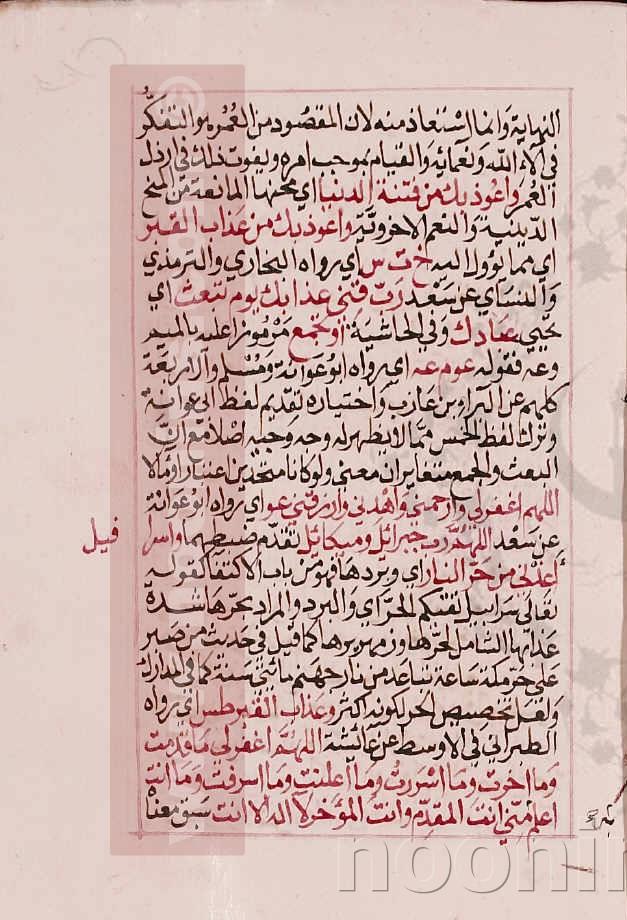 النهاية وانما استعاذ منه لان المقصود من العمر هو التفكر
في آلاء الله ونعمائه والقيام بموجب امره ويفوت ذلك في ارذل
العمر واعوذ بك من فتنة الدنيا اي محنها المانعة من المنح
الدينية والنعم الاخروية واعوذ بك من عذاب القبر
اي مما يؤول اليه خ ت س اي رواه البخاري والترمذي
والنساي عن سعد رب قني عذابك يوم تبعث اي
تحيي عبادك وفي الحاشية او تجمع مرموزا عليه بالميم
وعه فقوله عو م عه اي رواه ابو عوانة ومسلم والاربعة
كلهم عن البراء بن عازب واختياره تقديم لفظ ابي عوانة
وترك لفظ الخمس مما لا يظهر له وجه وجيه اصلا مع ان
البعث والجمع متغايران معنى ولو كانا متحدين اعتبارا ومالا
اللهم اغفر لي وارحمني واهدني وارزقني عو اي رواه ابو عوانة
عن سعد اللهم رب جبرائل وميكائل تقدم ضبطهما واسرا
فيل
اعذني من حر النار اي وبردها فهو من باب الاكتفا كقوله
تعالى سرابيل تقيكم الحر اي والبرد والمراد بحرها شدة
عذابها الشامل لحرها وزمهريرها كما قيل في حديث من صبر
على حر مكة ساعة تباعد من نار جهنم مائتي سنة كما في المدارك
ولعل تخصيص الحر لكونه اكثر وعذاب القبر طس اي رواه
الطبراني في الاوسط عن عائشة اللهم اغفر لي ما قدمت
وما اخرت وما اسررت وما اعلنت وما اسرفت وما انت
اعلم به مني انت المقدم وانت المؤخر لا اله الا انت سبق معناه
noonin